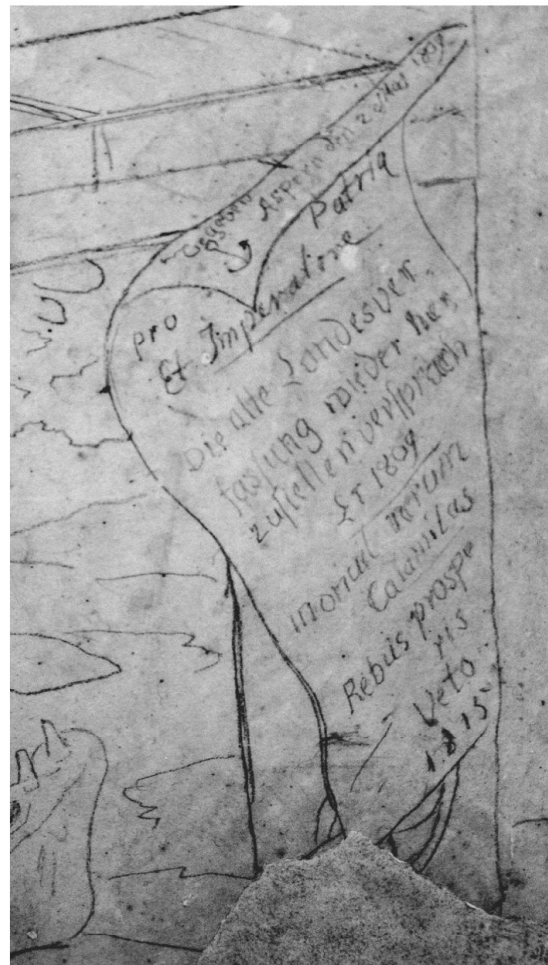 Gegeben Aspern den 24 Mai 1809
pro Patria
Et Imperatore
Die alte Landesver,
fassung wieder her,
zustellen versprach
Er 1809
rerum
Calamitas
Rebus prospe
ris
Veto
1815